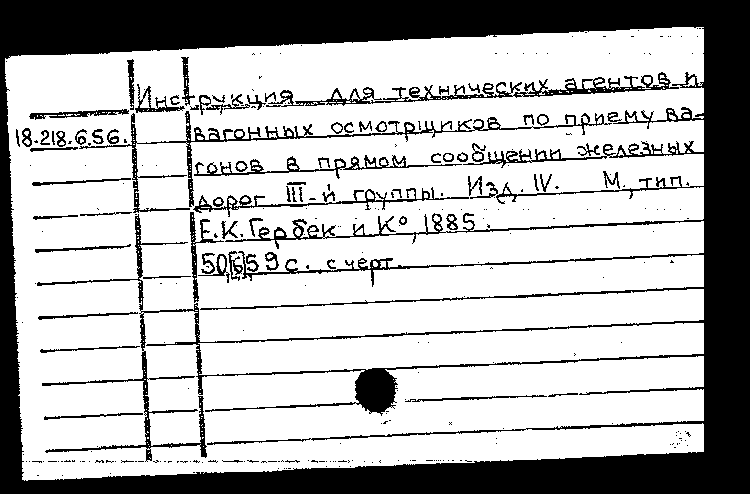 Инструкция для технических агентов и
18.218.6.56. вагонных осмотрщиков по приему ва-
гонов в прямом сообщении железных
дорог III-й группы. Изд. IV. М., тип.
Е.К. Гербек и Кº, 1885.
50[6]59 с. с черт.